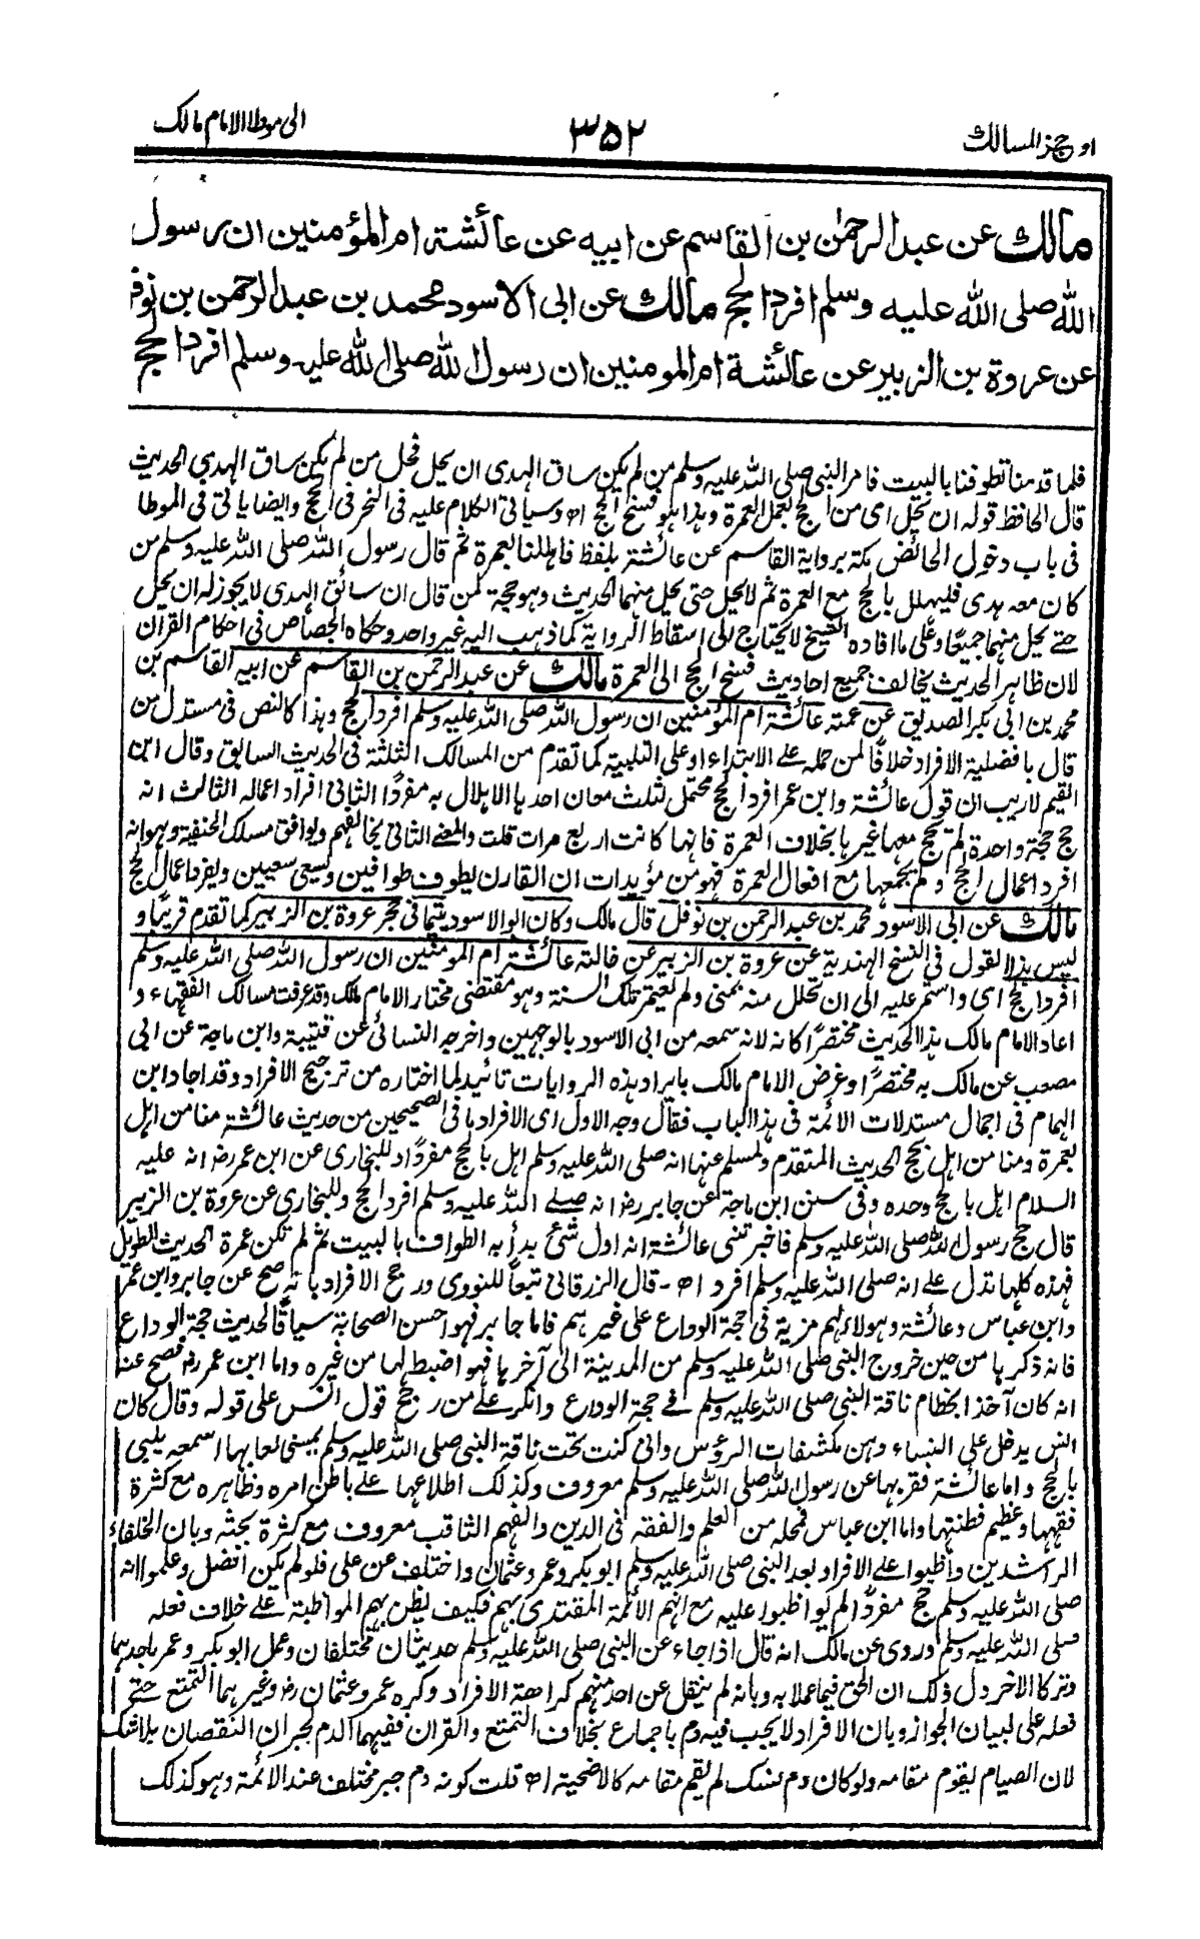 اوجز المسالك ۳۵۲ الى موطا الامام مالك
مالك عن عبد الرحمٰن بن القاسم عن ابيه عن عائشة ام المؤمنين ان رسول
الله صلى الله عليه وسلم افرد الحج مالك عن ابى الاسود محمد بن عبد الرحمن بن نوفل
عن عروة بن الزبير عن عائشة ام المومنين ان رسول الله صلى الله عليه وسلم افرد الحج
فلما قدمنا تطوفنا بالبيت فامر النبى صلى الله عليه وسلم من لم يكن ساق الهدى ان يحل فحل من لم يكن ساق الهدي الحديث
قال الحافظ قوله ان يحل اى من الحج بعمل العمرة وهذا هو فسخ الحج اھ وسياتى الكلام عليه فى النحر فى الحج وايضا ياتى فى الموطا
فى باب دخول الحائض مكة برواية القاسم عن عائشة بلفظ فاهللنا بعمرة ثم قال رسول الله صلى الله عليه وسلم من
كان معه هدى فليهلل بالحج مع العمرة ثم لا يحل حتى يحل منهما الحديث وهو حجة لمن قال ان سائق الهدى لا يجوز له ان يحل
حتے يحل منهما جميعًا وعلى ما افاده الشيخ لا يحتاج الى اسقاط الرواية كما ذهب اليه غير واحد وحكاه الجصاص فى احكام القرآن
لان ظاهر الحديث يخالف جميع احاديث فسخ الحج الى العمرة مالك عن عبد الرحمن بن القاسم عن ابيه القاسم بن
محمد بن ابى بكر الصديق عن عمته عائشة ام المؤمنين ان رسول الله صلى الله عليه وسلم افرد الحج وهذا كالنص فى مستدل من
قال بافضلية الافراد خلافًا لمن حمله على الابتداء او على التلبية كما تقدم من المسالك الثلثة فى الحديث السابق وقال ابن
القيم لا ريب ان قول عائشة وابن عمر افرد الحج محتمل لثلث معان احدها الاهلال به مفردًا الثانى افراد اعماله الثالث انه
حج حجة واحدة لم يحج معها غيرها بخلاف العمرة فانها كانت اربع مرات قلت والمعنے الثانى يخالفهم ويوافق مسلك الحنفية وهو انه
افرد اعمال الحج ولم يجمعها مع افعال العمرة فهو من مؤيدات ان القارن يطوف طوافين ويسعى سعيين ويفرد اعمال الحج
مالك عن ابى الاسود محمد بن عبد الرحمن بن نوفل قال مالك وكان ابو الاسود يتيما فى حجر عروة بن الزبير كما تقدم قريبًا و
ليس هذا القول فى النسخ الهندية عن عروة بن الزبير عن خالته عائشة ام المومنين ان رسول الله صلى الله عليه وسلم
افرد الحج اى واستمر عليه الى ان تحلل منه بمنى ولم يعتمر تلك السنة وهو مقتضى مختار الامام مالك وقد عرفت مسالك الفقهاء و
اعاد الامام مالك هذا الحديث مختصرًا كانه لانه سمعه من ابى الاسود بالوجهين واخرجه النسائى عن قتيبة وابن ماجة عن ابى
مصعب عن مالك به مختصرًا وغرض الامام مالك بايراد هذه الروايات تائيد لما اختاره من ترجيح الافراد وقد اجاد ابن
الهمام فى اجمال مستدلات الائمة فى هذا الباب فقال وجه الاول اى الافراد ما فى الصحيحين من حديث عائشة منا من اهل
بعمرة ومنا من اهل بحج الحديث المتقدم ولمسلم عنها انه صلى الله عليه وسلم اهل بالحج مفردًا وللبخارى عن ابن عمر رض انه عليه
السلام اهل بالحج وحده وفى سنن ابن ماجة عن جابر رض انه صلے الله عليه وسلم افرد الحج وللبخارى عن عروة بن الزبير
قال حج رسول الله صلى الله عليه وسلم فاخبرتنى عائشة انه اول شئ بدأ به الطواف بالبيت ثم لم تكن عمرة الحديث الطويل
فهذه كلها تدل على انه صلى الله عليه وسلم افرد اھ - قال الزرقانى تبعًا للنووى ورجح الافراد بانه صح عن جابر وابن عمر
وابن عباس وعائشة وهولاء لهم مزية فى حجة الوداع على غيرهم فاما جابر فهو احسن الصحابة سياقًا لحديث حجة الوداع
فانه ذكرها من حين خروج النبى صلى الله عليه وسلم من المدينة الى آخرها فهو اضبط لها من غيره واما ابن عمر رض فصح عنه
انه كان آخذ الخطام ناقة النبى صلى الله عليه وسلم فے حجة الوداع وانكر على من رجح قول انس على قوله وقال كان
انس يدخل على النساء وهن مكشفات الرؤس وانى كنت تحت ناقة النبى صلى الله عليه وسلم يمسنى لعابها اسمعه يلبى
بالحج واما عائشة فقربها من رسول الله صلى الله عليه وسلم معروف وكذلك اطلاعها على باطن امره وظاهره مع كثرة
فقهها وعظيم فطنتها واما ابن عباس فمحله من العلم والفقه فى الدين والفهم الثاقب معروف مع كثرة بحثه وبان الخلفاء
الراشدين واظبوا على الافراد بعد النبى صلى الله عليه وسلم ابو بكر وعمر وعثمان واختلف عن على فلو لم يكن افضل وعلموا انه
صلى الله عليه وسلم حج مفردًا لم يواظبوا عليه مع انهم الائمة المقتدى بهم فكيف يظن بهم المواظبة على خلاف فعله
صلى الله عليه وسلم وروى عن مالك انه قال اذا جاء عن النبى صلى الله عليه وسلم حديثان مختلفان وعمل ابو بكر وعمر باحدهما
وتركا الاخر دل ذلك ان الحق فيما عملا به وبانه لم ينقل عن احد منهم كراهة الافراد وكره عمر وعثمان رض وغيرهما التمتع حتے
فعله على لبيان الجواز وبان الافراد لا يجب فيه دم باجماع بخلاف التمتع والقران ففيهما الدم لجبران النقصان بلا شك
لان الصيام يقوم مقامه ولو كان دم نسك لم يقم مقامه كالاضحية اھ قلت كونه دم جبر مختلف عند الائمة وهو كذلك